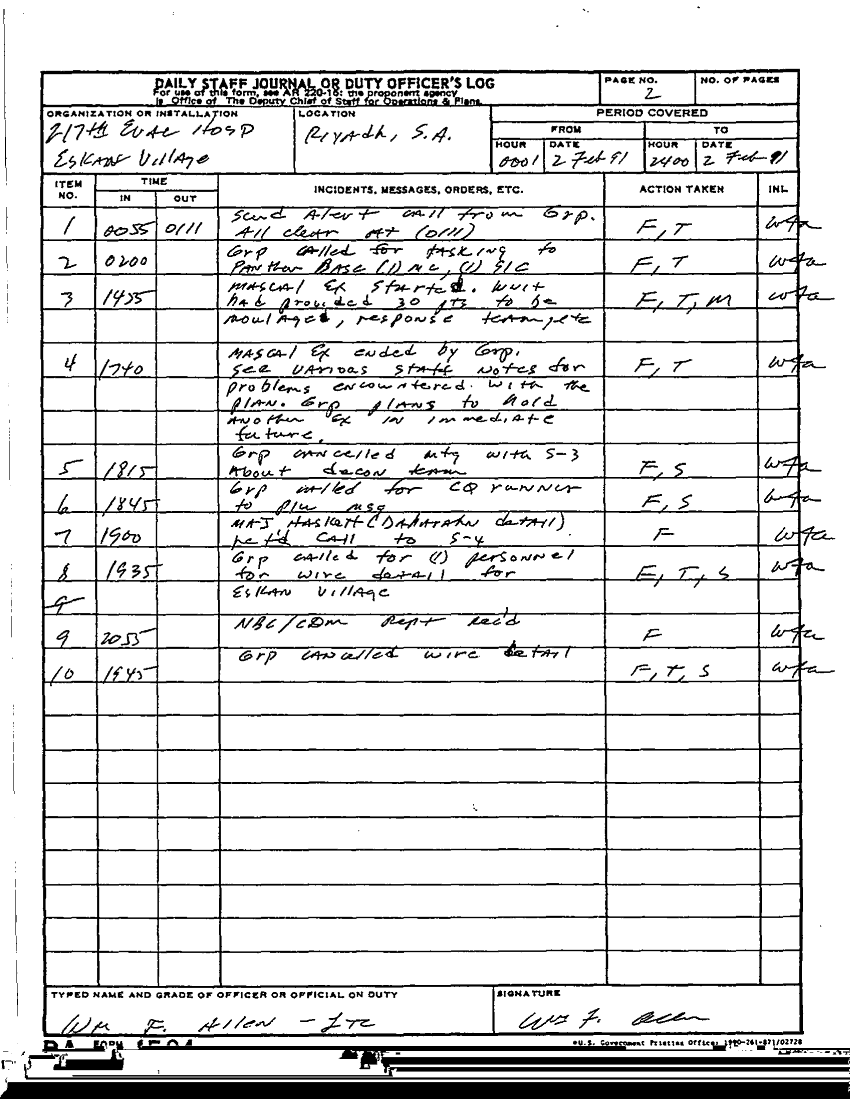 DAILY STAFF JOURNAL OR DUTY OFFICER'S LOG
For use of this form, see AR 220-15; the proponent agency
is Office of The Deputy Chief of Staff for Operations & Plans.
PAGE NO.
2
NO. OF PAGES
ORGANIZATION OR INSTALLATION
217th Evac Hosp
Eskan Village
LOCATION
Riyadh, S.A.
PERIOD COVERED
FROM
TO
HOUR
0001
DATE
2 Feb 91
HOUR
2400
DATE
2 Feb 91
ITEM NO.
TIME
IN
OUT
INCIDENTS, MESSAGES, ORDERS, ETC.
ACTION TAKEN
INL
1 0055 0111 Scud Alert call from Grp. F, T wfa
All clear At (0111)
2 0200 Grp called for tasking to F, T wfa
Panther Base (1) MC, (1) 91C
3 1455 MASCAL Ex started. Unit F, T, M wfa
had provided 30 pts to be
moulaged, response team, etc
4 1740 MASCAL Ex ended by Grp. F, T wfa
See various staff notes for
problems encountered with the
plan. Grp plans to hold
another Ex in immediate
future.
5 1815 Grp cancelled mtg with S-3 F, S wfa
About decon team
6 1845 Grp called for CQ runner F, S wfa
to p/u msg
7 1900 MAJ Haskett (Dahahran detail) F wfa
ret'd call to S-4
8 1935 Grp called for (1) personnel F, T, S wfa
for wire detail for
Eskan Village
9
9 2055 NBC/CDM Rept rec'd F wfa
10 1945 Grp cancelled wire detail F, T, S wfa
TYPED NAME AND GRADE OF OFFICER OR OFFICIAL ON DUTY
Wm F. Allen - LTC
SIGNATURE
Wm F. Allen
DA FORM 1594
U.S. Government Printing Office: 1990-261-871/02728